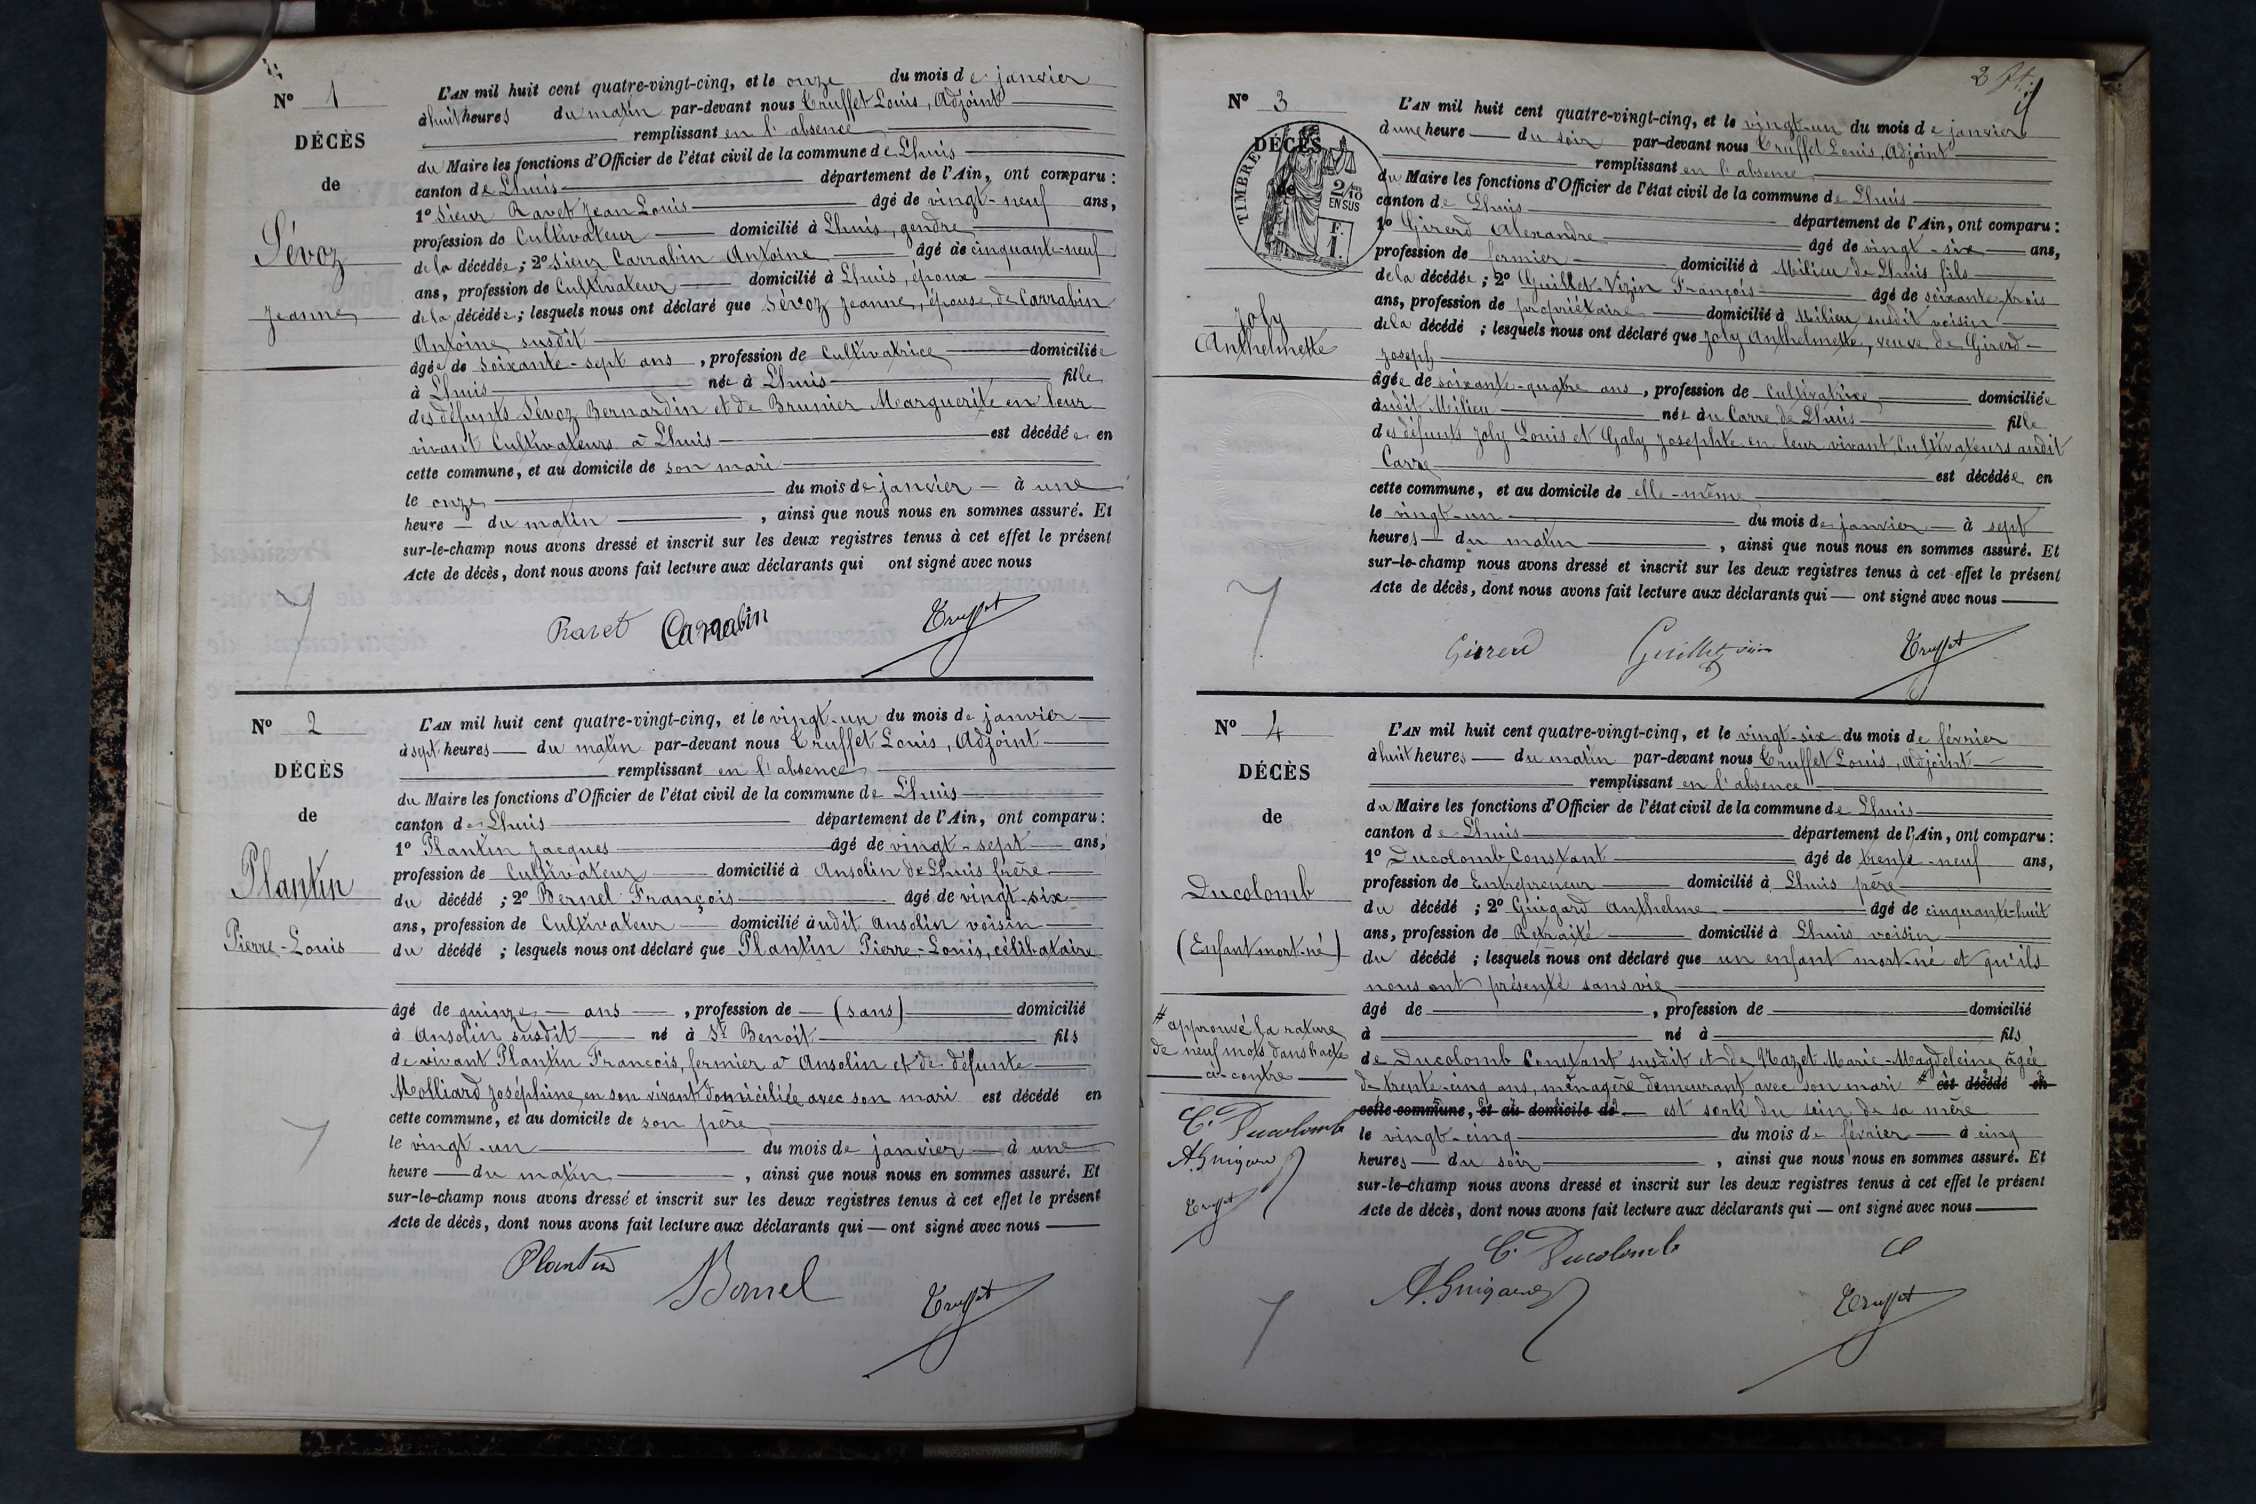 N° 1
DÉCÈS
de
Sévoz
Jeanne
L'AN mil huit cent quatre-vingt-cinq, et le onze du mois de janvier
à huit heures du matin par-devant nous Truffet Louis, Adjoint
remplissant en l'absence
du Maire les fonctions d'Officier de l'état civil de la commune de Lhuis
canton de Lhuis département de l'Ain, ont comparu :
1° Sieur Ravet Jean Louis âgé de vingt-neuf ans,
profession de Cultivateur domicilié à Lhuis, gendre
de la décédée ; 2° Sieur Carrabin Antoine âgé de cinquante-neuf
ans, profession de Cultivateur domicilié à Lhuis, époux
de la décédée ; lesquels nous ont déclaré que Sévoz Jeanne, épouse de Carrabin
Antoine susdit
âgée de soixante-sept ans, profession de Cultivatrice domiciliée
à Lhuis née à Lhuis fille
des défunts Sévoz Bernardin et de Brunier Marguerite en leur
vivant Cultivateurs à Lhuis est décédée en
cette commune, et au domicile de son mari
le onze du mois de janvier à une
heure du matin, ainsi que nous nous en sommes assuré. Et
sur-le-champ nous avons dressé et inscrit sur les deux registres tenus à cet effet le présent
Acte de décès, dont nous avons fait lecture aux déclarants qui ont signé avec nous
Ravet Carrabin Truffet
N° 2
DÉCÈS
de
Plantin
Pierre-Louis
L'AN mil huit cent quatre-vingt-cinq, et le vingt-un du mois de janvier
à sept heures du matin par-devant nous Truffet Louis, Adjoint
remplissant en l'absence
du Maire les fonctions d'Officier de l'état civil de la commune de Lhuis
canton de Lhuis département de l'Ain, ont comparu :
1° Plantin Jacques âgé de vingt-sept ans,
profession de Cultivateur domicilié à Ansolin de Lhuis frère
du décédé ; 2° Bernel François âgé de vingt-six
ans, profession de Cultivateur domicilié audit Ansolin voisin
du décédé ; lesquels nous ont déclaré que Plantin Pierre-Louis, célibataire
âgé de quinze ans, profession de (sans) domicilié
à Ansolin susdit né à St Benoit fils
de vivant Plantin François, fermier à Ansolin et de défunte
Molliard Joséphine, en son vivant domiciliée avec son mari est décédé en
cette commune, et au domicile de son père
le vingt-un du mois de janvier à une
heure du matin, ainsi que nous nous en sommes assuré. Et
sur-le-champ nous avons dressé et inscrit sur les deux registres tenus à cet effet le présent
Acte de décès, dont nous avons fait lecture aux déclarants qui ont signé avec nous
Plantin Bernel Truffet
N° 3
DÉCÈS
de
TIMBRE
2/10
EN SUS
F.
1.
Joly
Anthelmette
L'AN mil huit cent quatre-vingt-cinq, et le vingt-un du mois de janvier
à une heure du soir par-devant nous Truffet Louis, Adjoint
remplissant en l'absence
du Maire les fonctions d'Officier de l'état civil de la commune de Lhuis
canton de Lhuis département de l'Ain, ont comparu :
1° Girerd Alexandre âgé de vingt-six ans,
profession de fermier domicilié à Milieu de Lhuis fils
de la décédée ; 2° Guillet-Vizin François âgé de soixante-trois
ans, profession de propriétaire domicilié à Milieu susdit voisin
de la décédé ; lesquels nous ont déclaré que Joly Anthelmette, veuve de Girerd
Joseph
âgée de soixante-quatre ans, profession de Cultivatrice domiciliée
audit Milieu née au Carre de Lhuis fille
des défunts Joly Louis et Galy Josephte en leur vivant Cultivateurs audit
Carre est décédée en
cette commune, et au domicile de elle-même
le vingt-un du mois de janvier à sept
heures du matin, ainsi que nous nous en sommes assuré. Et
sur-le-champ nous avons dressé et inscrit sur les deux registres tenus à cet effet le présent
Acte de décès, dont nous avons fait lecture aux déclarants qui ont signé avec nous
Girerd Guillet vizin Truffet
N° 4
DÉCÈS
de
Ducolomb
(Enfant mort-né)
# approuvé la rature
de neuf mots dans l'acte
ci-contre
C. Ducolomb
A. Guigard
Truffet
L'AN mil huit cent quatre-vingt-cinq, et le vingt-six du mois de février
à huit heures du matin par-devant nous Truffet Louis, Adjoint
remplissant en l'absence
du Maire les fonctions d'Officier de l'état civil de la commune de Lhuis
canton de Lhuis département de l'Ain, ont comparu :
1° Ducolomb Constant âgé de trente-neuf ans,
profession de Entrepreneur domicilié à Lhuis père
du décédé ; 2° Guigard Anthelme âgé de cinquante-huit
ans, profession de Retraité domicilié à Lhuis voisin
du décédé ; lesquels nous ont déclaré que un enfant mort-né et qu'ils
nous ont présenté sans vie
âgé de , profession de domicilié
à né à fils
de Ducolomb Constant susdit et de Mazet Marie-Magdeleine, âgée
de trente-cinq ans, ménagère demeurant avec son mari # est décédé en
cette commune, et au domicile de est sorti du sein de sa mère
le vingt-cinq du mois de février à cinq
heures du soir, ainsi que nous nous en sommes assuré. Et
sur-le-champ nous avons dressé et inscrit sur les deux registres tenus à cet effet le présent
Acte de décès, dont nous avons fait lecture aux déclarants qui ont signé avec nous
C. Ducolomb
A. Guigard Truffet